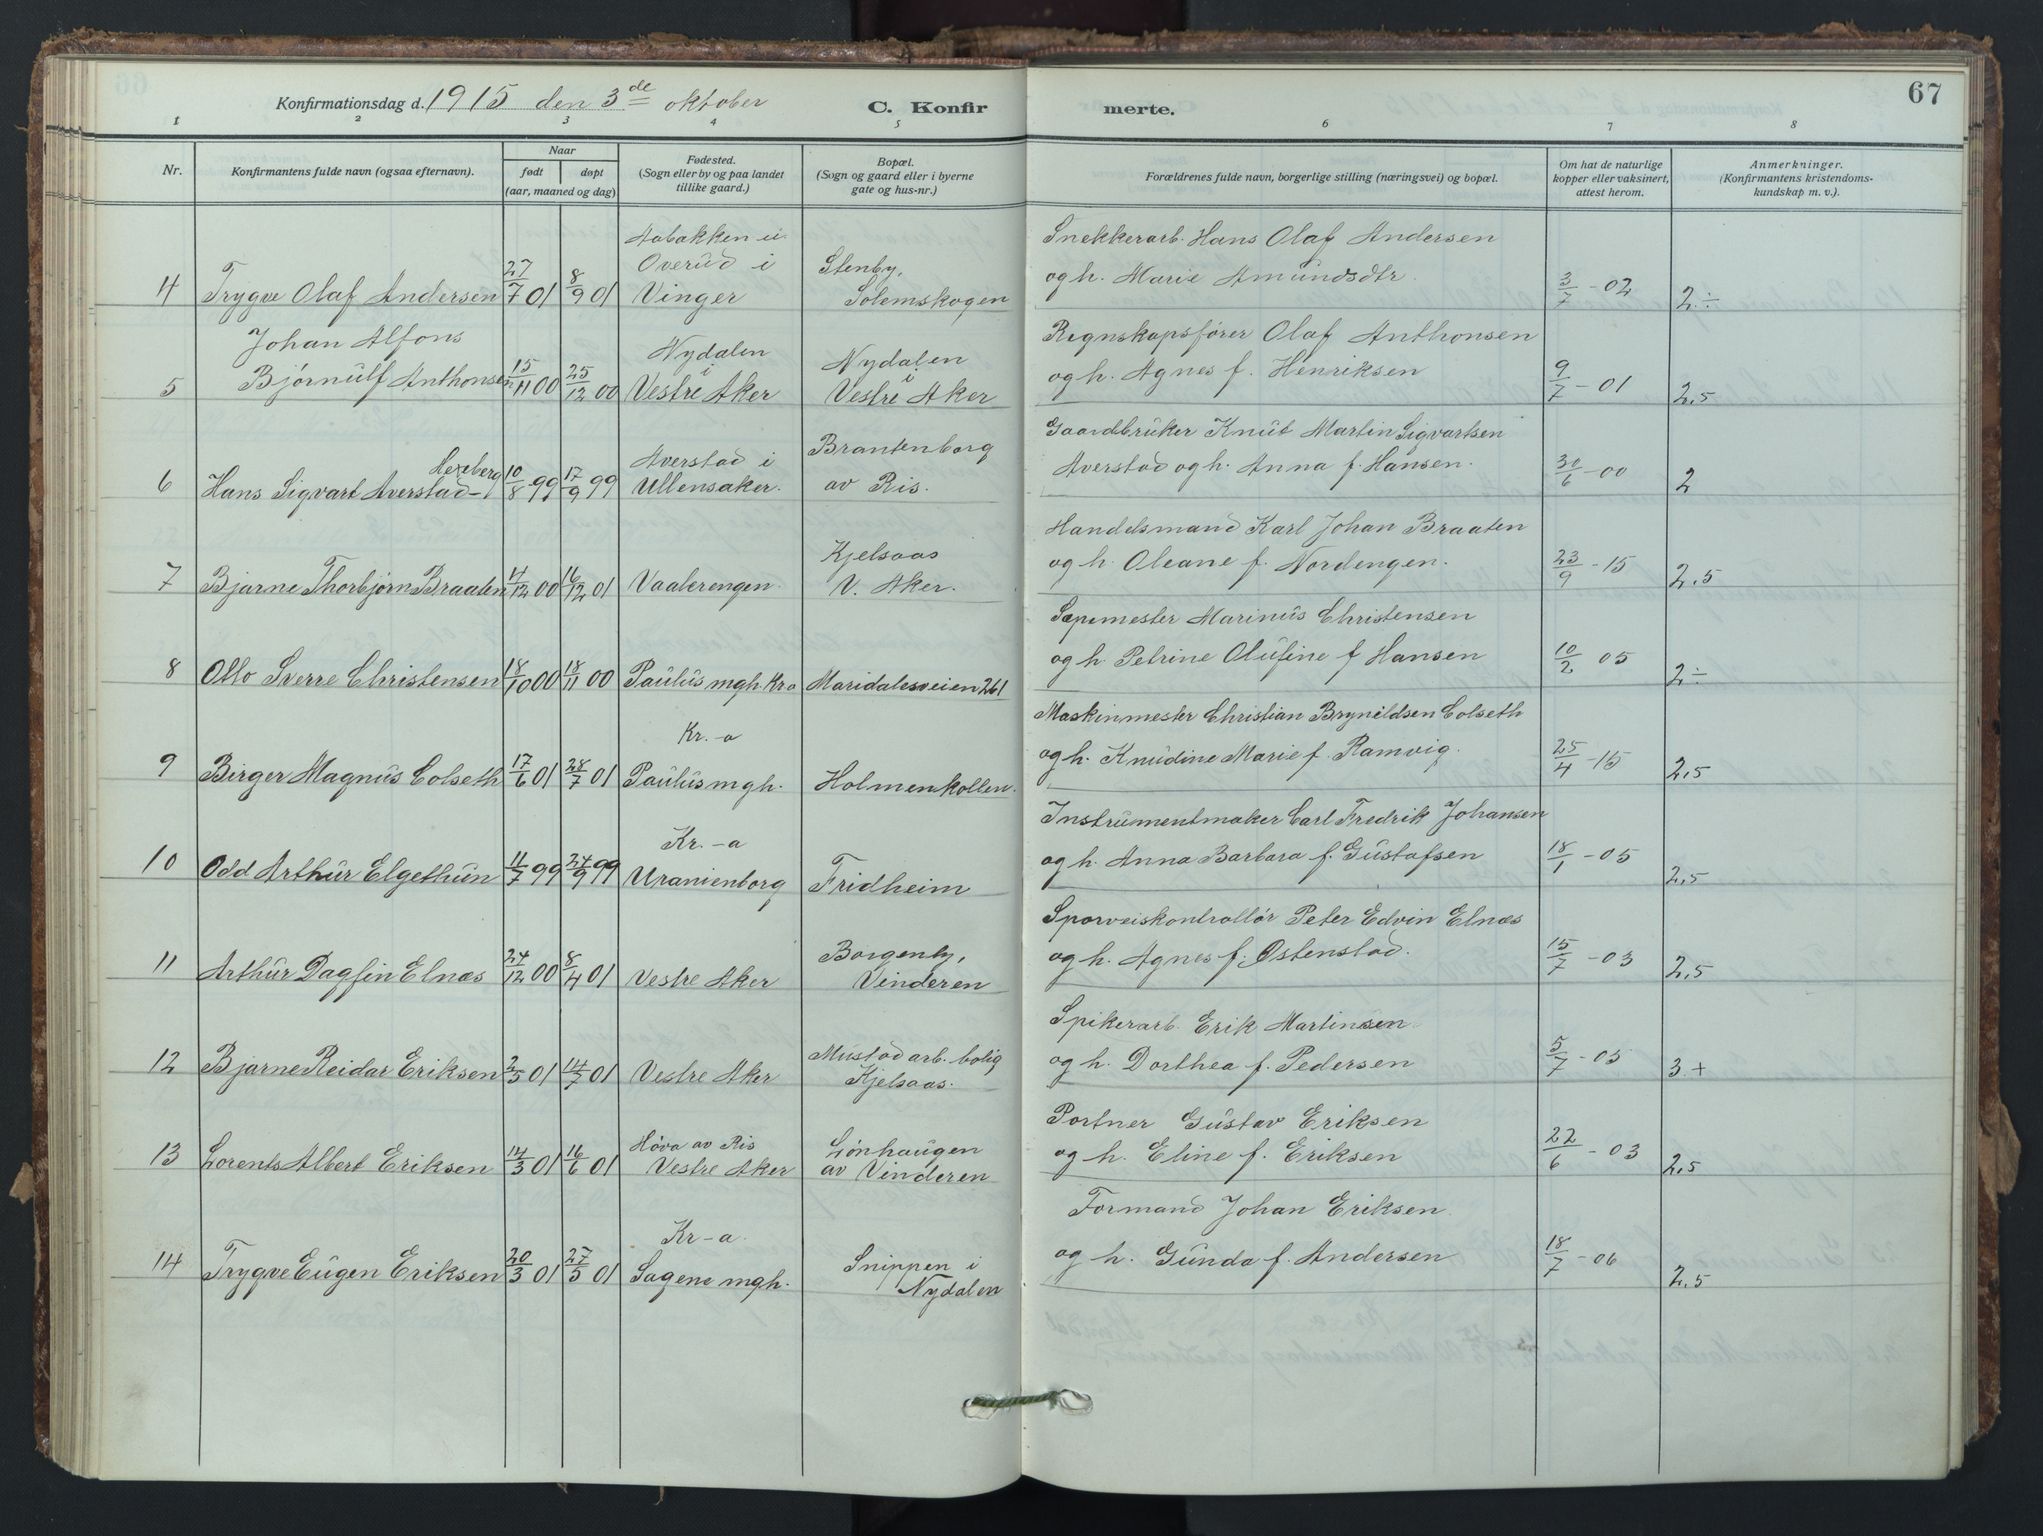 67
Konfirmationsdag d. 1915 den 3de oktober C. Konfirmerte.
1 2 3 4 5 6 7 8
Nr. Konfirmantens fulde navn (ogsaa efternavn). Naar født døpt (aar, maaned og dag) Fødested. (Sogn eller by og paa landet tillike gaard.) Bopæl. (Sogn og gaard eller i byerne gate og hus-nr.) Forældrenes fulde navn, borgerlige stilling (næringsvei) og bopæl. Om hat de naturlige kopper eller vaksinert, attest herom. Anmerkninger. (Konfirmantens kristendomskundskap m. v.).
Aabakken u. Snekkerarb. Hans Olaf Andersen
Overud i Stenby, og h. Marie Amundsdtr
4 Trygve Olaf Andersen 27/7 01 8/9 01 Vinger Solemskogen 3/7 - 02 2 ÷
Johan Alfons Nydalen Nydalen Regnskapsfører Olaf Anthonsen
i i og h. Agnes f. Henriksen
5 Bjørnulf Anthonsen 15/11 00 25/12 00 Vestre Aker Vestre Aker 9/7 - 01 2,5
Hexeberg Averstad i Brantenborg Gaardbruker Knut Martin Sigvartsen
6 Hans Sigvart Averstad- 10/8 99 17/9 99 Ullensaker. av Ris. Averstad og h. Anna f. Hansen. 30/6 - 00 2
Kjelsaas Handelsmand Karl Johan Braaten
7 Bjarne Thorbjørn Braaten 4/12 00 16/12 01 Vaalerengen. V. Aker. og h. Oleane f. Nordengen. 23/9 - 15 2,5
Sæpemester Marinus Christensen
8 Otto Sverre Christensen 18/10 00 18/11 00 Paulus mgh. Kra Maridalsveien 261 og h. Petrine Olufine f Hansen 10/2 05 2 ÷
Kr.-a Maskinmester Christian Bryneldsen Colseth
9 Birger Magnus Colseth 17/6 01 28/7 01 Paulus mgh. Holmenkollen. og h. Knudine Marie f. Ramvig. 25/4 - 15 2,5
Kr.-a Instrumentmaker Carl Fredrik Johansen
10 Odd Arthur Elgethun 11/7 99 24/9 99 Uranienborg Fridheim og h. Anna Barbara f. Gustafsen 18/1 - 05 2,5
Borgenby, Sporveiskontrollør Peter Edvin Elnæs
11 Arthur Dagfin Elnæs 24/12 00 8/4 01 Vestre Aker Vinderen og h. Agnes f. Østenstad. 15/7 - 03 2,5
Mustad arb. bolig Spikerarb. Erik Martinsen
12 Bjarne Reidar Eriksen 2/5 01 14/7 01 Vestre Aker Kjelsaas. og h. Dorthea f. Pedersen 5/7 - 05 3 +
Høva av Ris Lønhaugen Portner Gustav Eriksen
13 Lorents Albert Eriksen 14/3 01 16/6 01 Vestre Aker av Vinderen og h. Eline f. Eriksen 22/6 - 03 2,5
Kr-a. Snippen i Formand Johan Eriksen.
14 Trygve Eugen Eriksen 20/3 01 27/5 01 Sagene mgh. Nydalen og h. Gunda f. Andersen 18/7 - 06 2,5